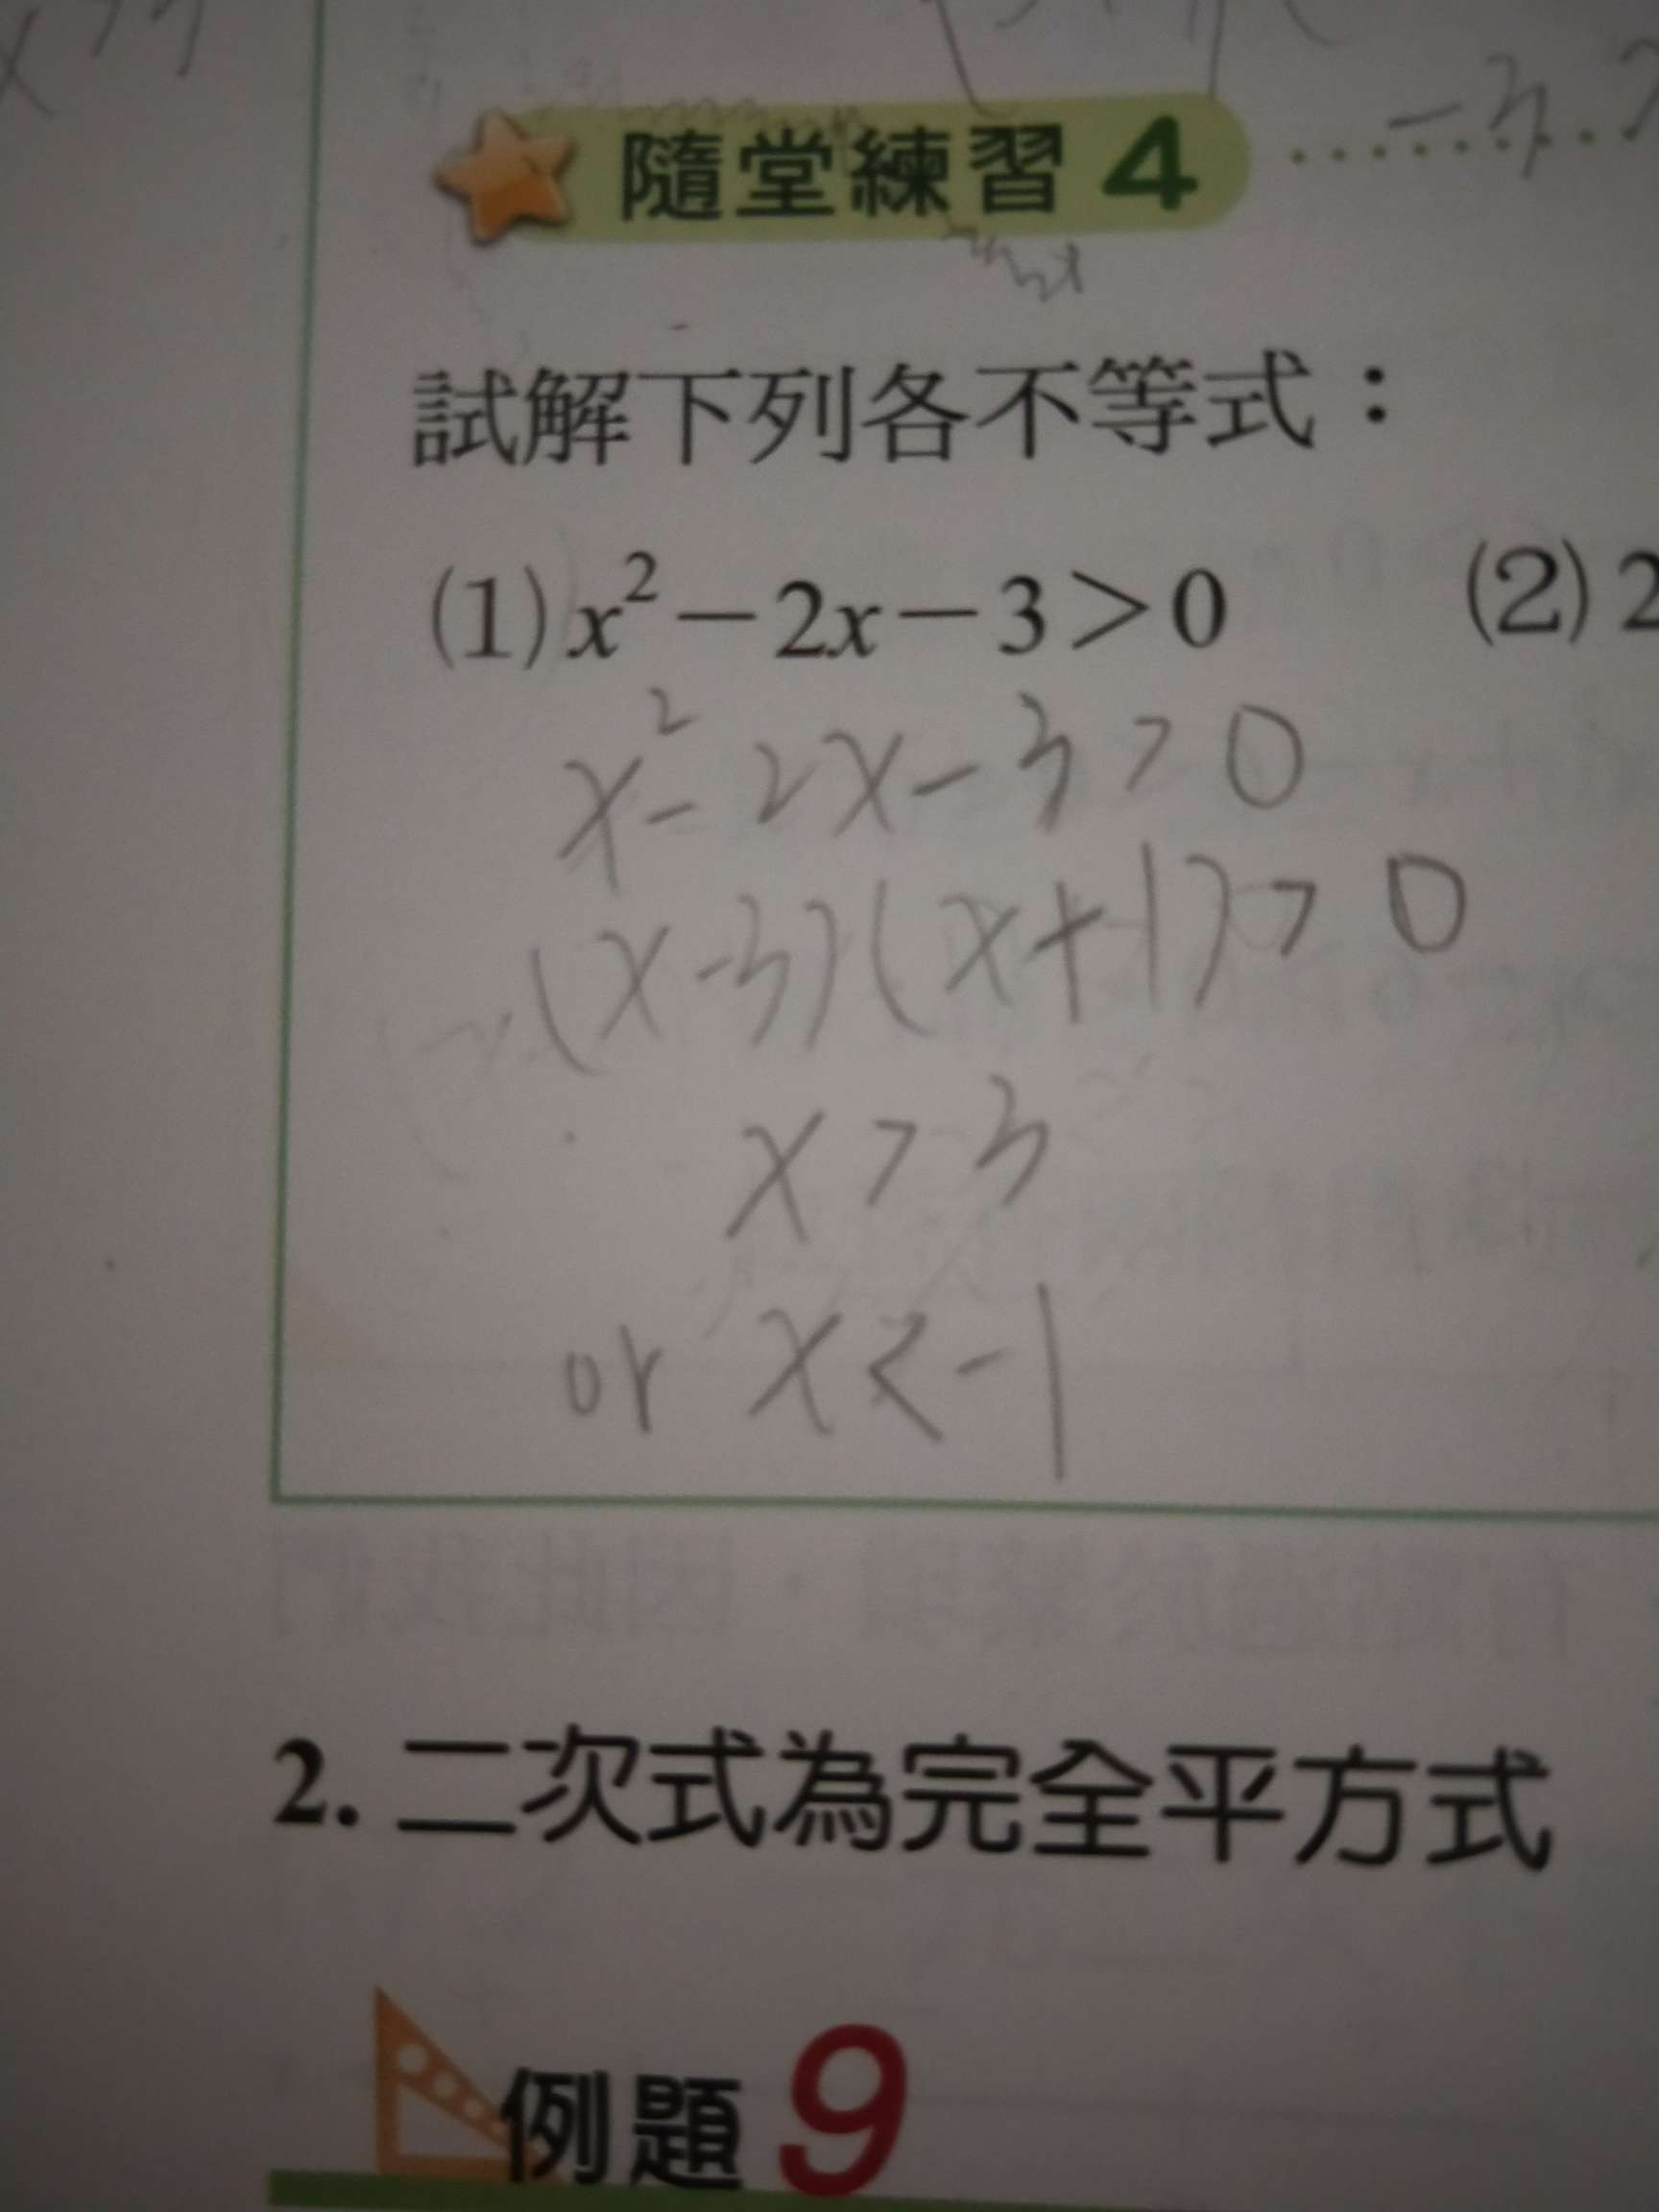 隨堂練習 4
試解下列各不等式：
(1) x² − 2x − 3 > 0 (2) 2
x² - 2x - 3 > 0
(x-3)(x+1) > 0
x > 3
or x < -1
2. 二次式為完全平方式
例題 9